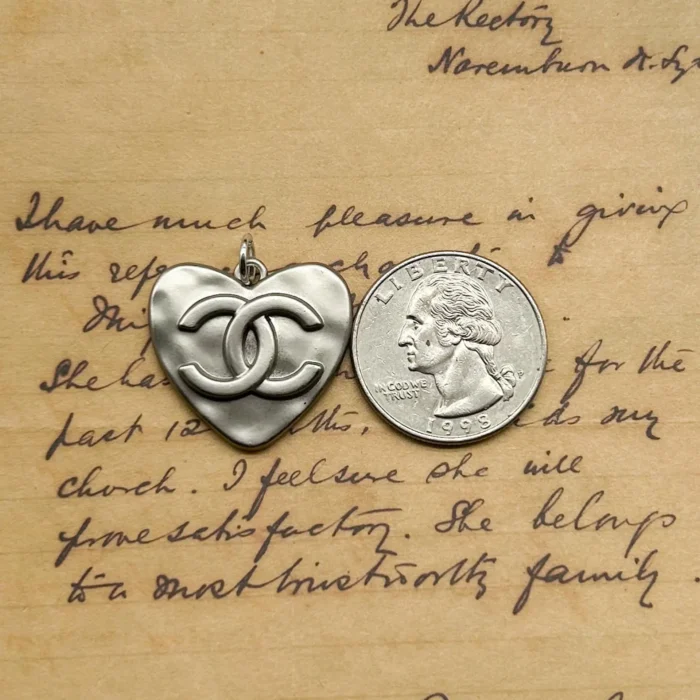 The Rectory
Naremburn N. Sy
I have much pleasure in giving
this refe cha
LIBERTY
IN GOD WE
TRUST
P
1998
She has for the
past 12 ths, ds my
church. I feel sure she will
prove satisfactory. She belongs
to a most trustworthy family.